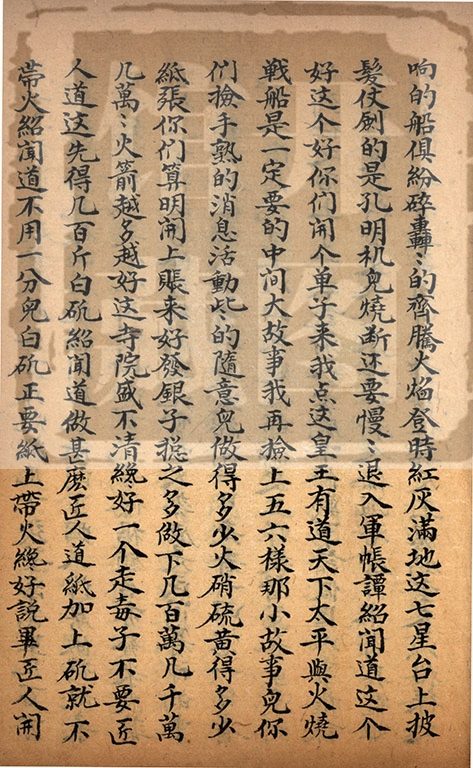 响的船俱紛碎轟〻的齊騰火焰登時紅灰滿地这七星台上披
髮仗劍的是孔明机兒燒斷还要慢〻退入軍帳譚紹聞道这个
好这个好你们開个单子来我点这皇王有道天下太平與火燒
戦船是一定要的中间大故事我再撿上五六様那小故事兒你
们撿手熟的消息活動些的隨意兒做得多少火硝硫黄得多少
紙張你们算明開上賬来好發銀子捴之多做下几百萬几千萬
几萬〻火箭越多越好这寺院盛不清纔好一个走毒子不要匠
人道这先得几百斤白矾紹聞道做甚麽匠人道紙加上矾就不
帶火紹聞道不用一分兒白矾正要紙上帶火纔好説畢匠人開